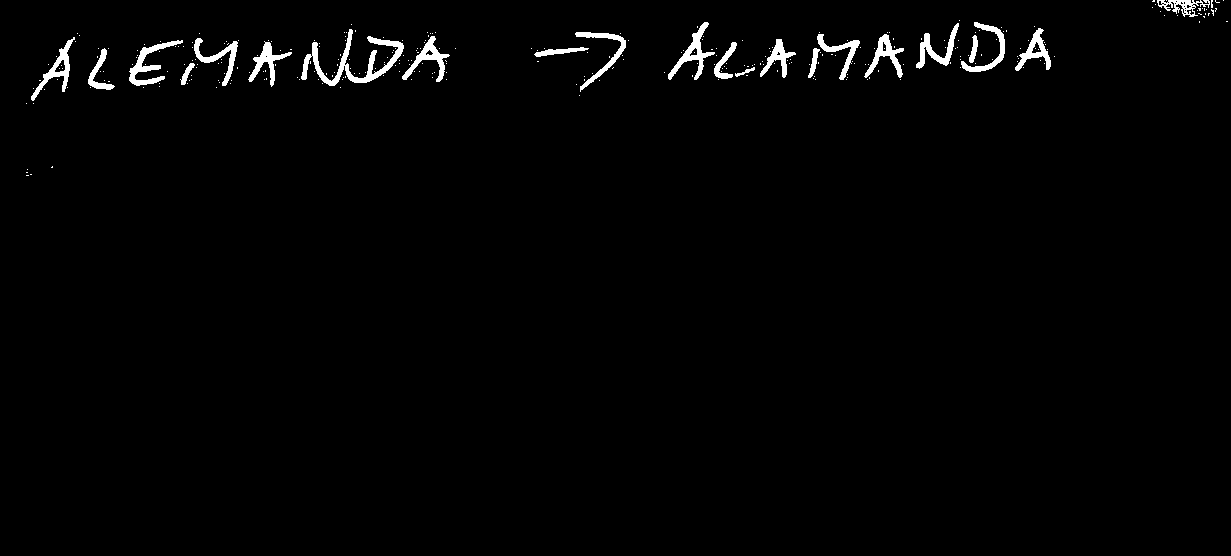 ALEMANDA → ALAMANDA